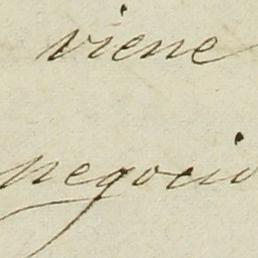 viene
negocio